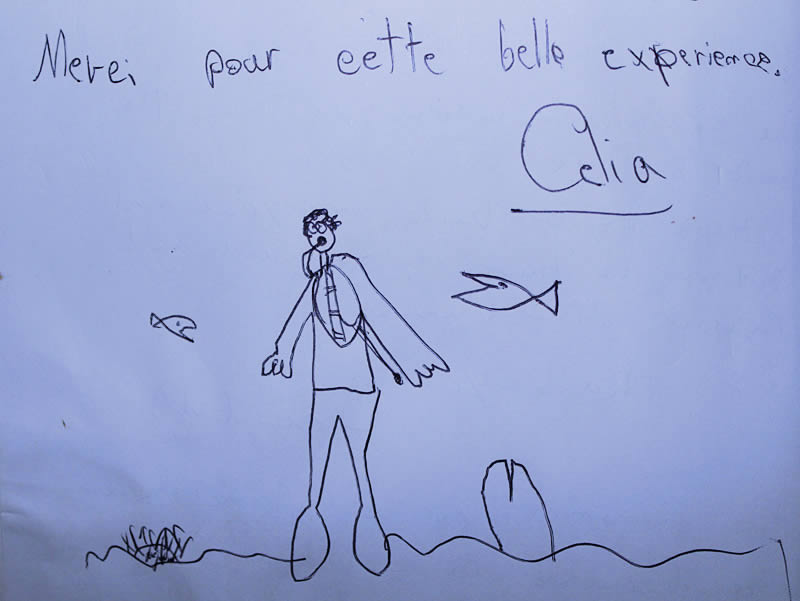 Merci pour cette belle experience.
Celia